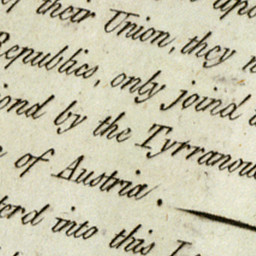 of their Union, they
Republics, only joind
by the Tyrranou
of Austria.
into this